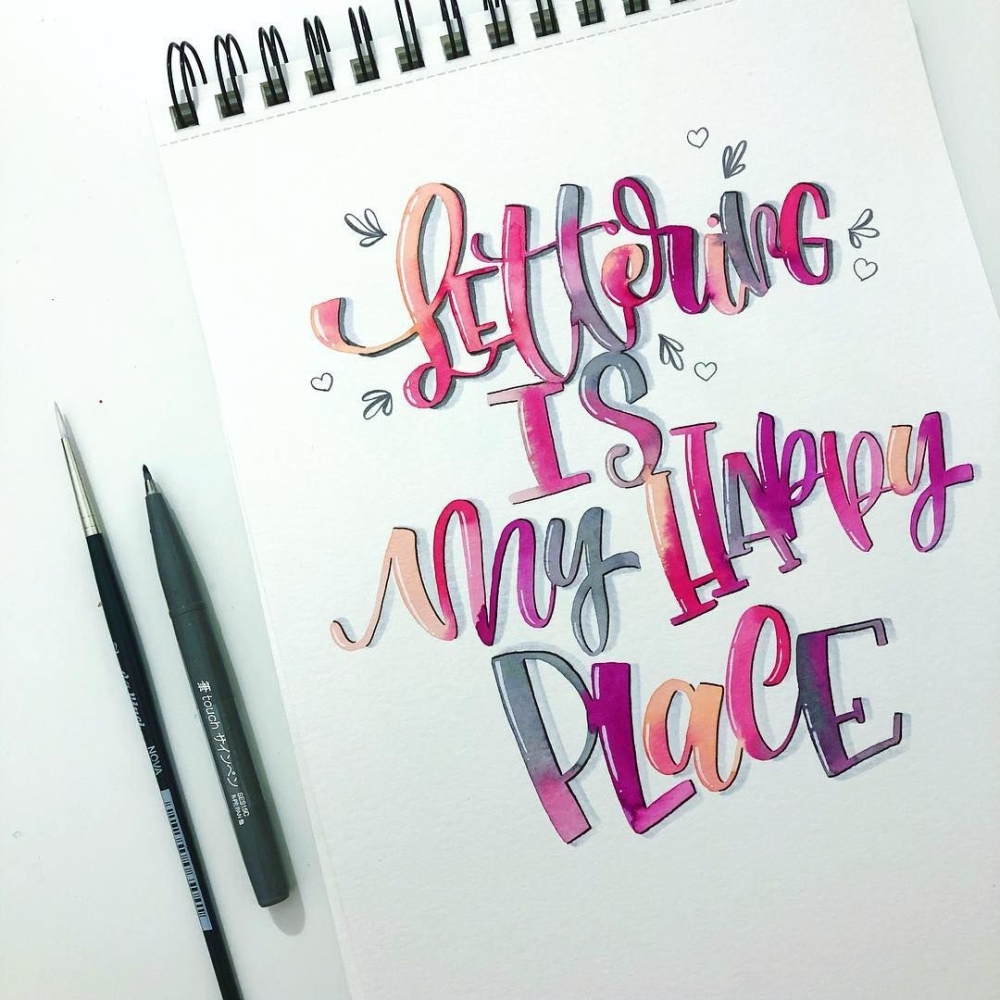 LEtterinG
IS
My HAppy
PLaCE
NOVA
筆touch サインペン
SES15C